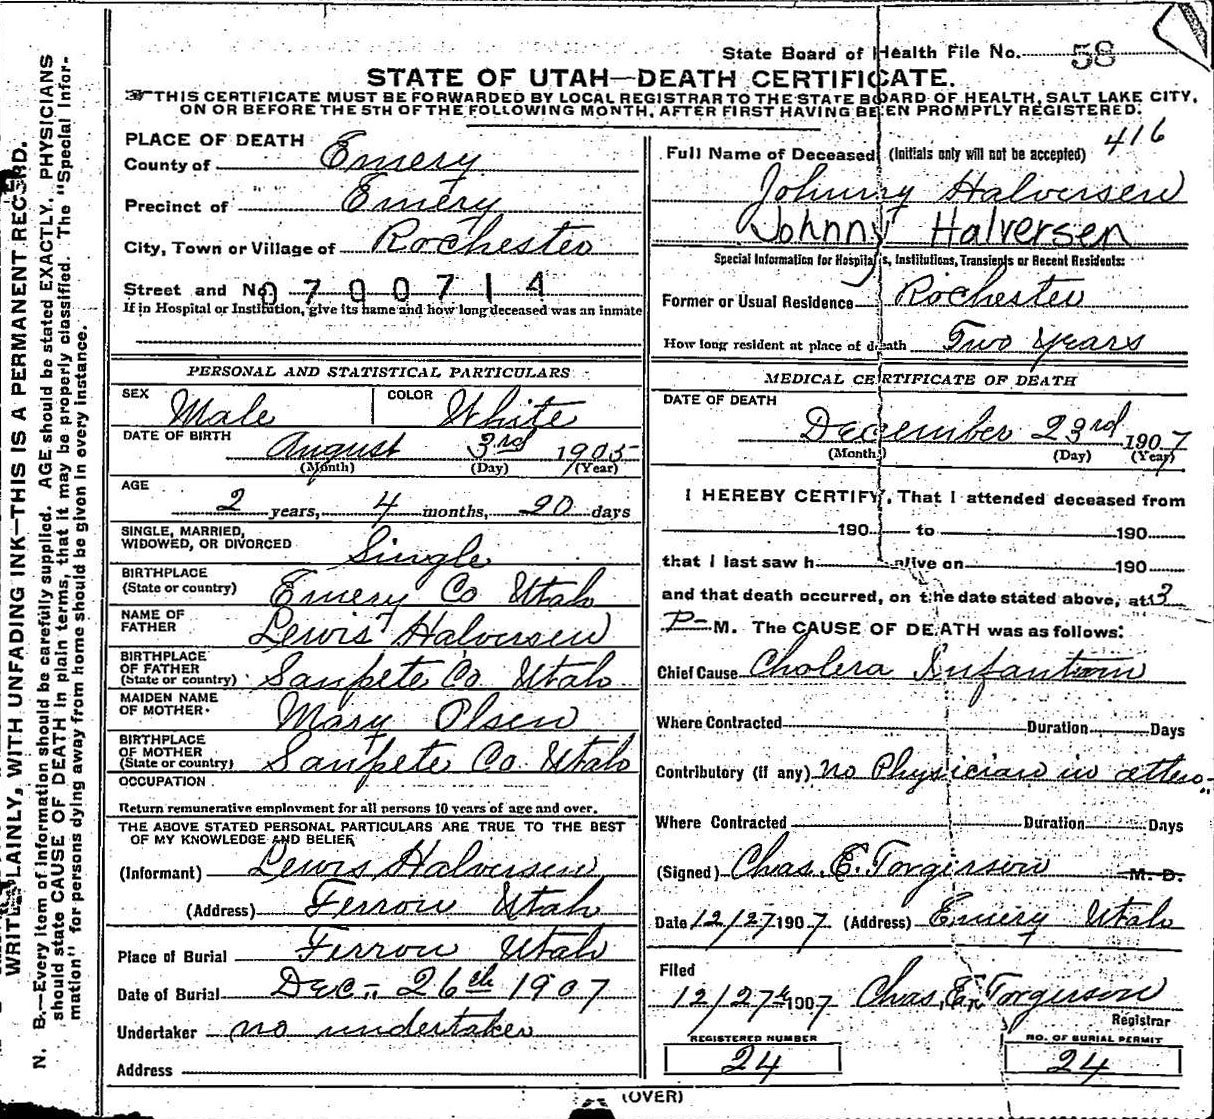 WRITE PLAINLY, WITH UNFADING INK—THIS IS A PERMANENT RECORD.
N. B.—Every item of information should be carefully supplied. AGE should be stated EXACTLY. PHYSICIANS
should state CAUSE OF DEATH in plain terms, that it may be properly classified. The "Special Infor-
mation" for persons dying away from home should be given in every instance.
State Board of Health File No. 58
STATE OF UTAH—DEATH CERTIFICATE.
THIS CERTIFICATE MUST BE FORWARDED BY LOCAL REGISTRAR TO THE STATE BOARD OF HEALTH, SALT LAKE CITY,
ON OR BEFORE THE 5TH OF THE FOLLOWING MONTH, AFTER FIRST HAVING BEEN PROMPTLY REGISTERED.
PLACE OF DEATH
County of Emery
Precinct of Emery
City, Town or Village of Rochester
Street and No. 0700714
If in Hospital or Institution, give its name and how long deceased was an inmate
PERSONAL AND STATISTICAL PARTICULARS
SEX Male COLOR White
DATE OF BIRTH August 3rd 1905
(Month) (Day) (Year)
AGE
2 years, 4 months, 20 days
SINGLE, MARRIED,
WIDOWED, OR DIVORCED Single
BIRTHPLACE
(State or country) Emery Co Utah
NAME OF
FATHER Lewis Halversen
BIRTHPLACE
OF FATHER
(State or country) Sanpete Co Utah
MAIDEN NAME
OF MOTHER Mary Olsen
BIRTHPLACE
OF MOTHER
(State or country) Sanpete Co Utah
OCCUPATION
Return remunerative employment for all persons 10 years of age and over.
THE ABOVE STATED PERSONAL PARTICULARS ARE TRUE TO THE BEST
OF MY KNOWLEDGE AND BELIEF
(Informant) Lewis Halversen
(Address) Ferron Utah
Place of Burial Ferron Utah
Date of Burial Dec. 26th 1907
Undertaker no undertaker
Address
416
Full Name of Deceased (Initials only will not be accepted)
Johnny Halversen
Johnny Halversen
Special Information for Hospitals, Institutions, Transients or Recent Residents:
Former or Usual Residence Rochester
How long resident at place of death Two Years
MEDICAL CERTIFICATE OF DEATH
DATE OF DEATH
December 23rd 1907
(Month) (Day) (Year)
I HEREBY CERTIFY, That I attended deceased from
190 to 190
that I last saw h alive on 190
and that death occurred, on the date stated above, at 3
P- M. The CAUSE OF DEATH was as follows:
Chief Cause Cholera Infantum
Where Contracted Duration Days
Contributory (if any) no Physician in atten-
Where Contracted Duration Days
(Signed) Chas. E. Torgerson M. D.
Date 12/27 1907 (Address) Emery Utah
Filed
12/27 1907 Chas. E. Torgerson
Registrar
REGISTERED NUMBER
24
NO. OF BURIAL PERMIT
24
(OVER)